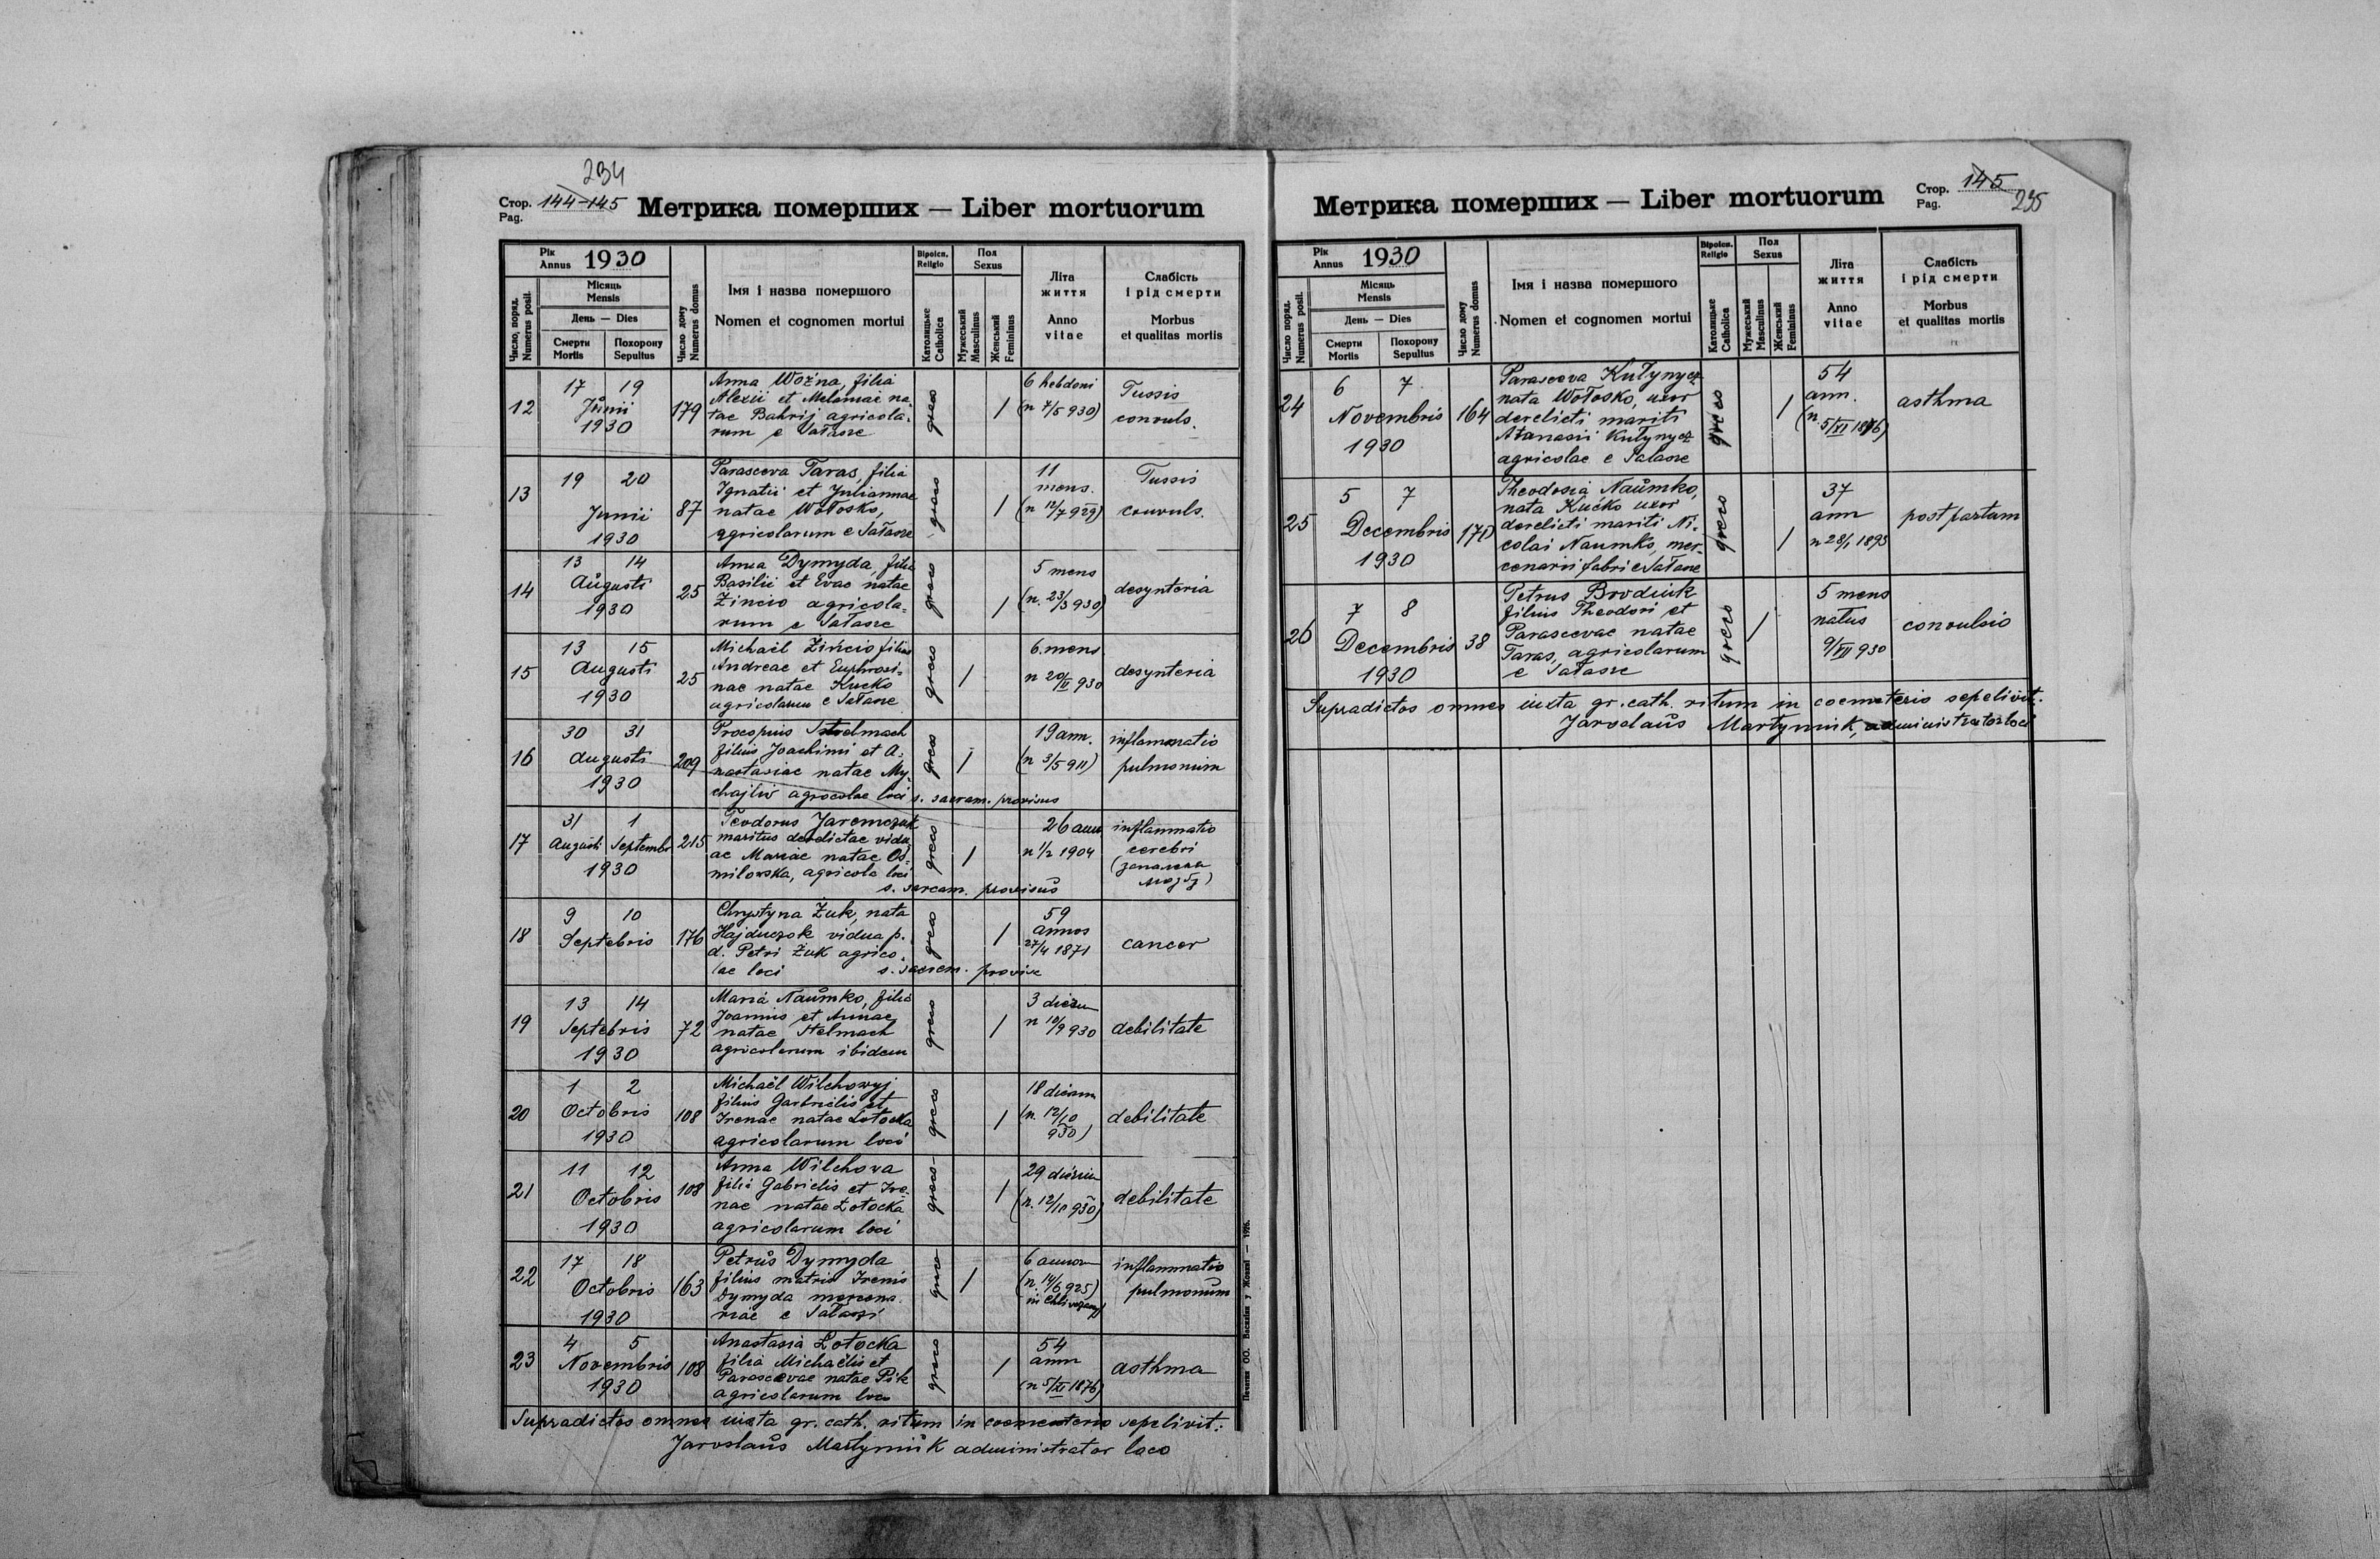 234
Стор. 144-145
Pag.
Метрика померших — Liber mortuorum
Рік
Annus 1930
Число, поряд.
Numerus posit.
Місяць
Mensis
День — Dies
Смерти
Mortis
Похорону
Sepultus
Число дому
Numerus domus
Імя і назва помершого
Nomen et cognomen mortui
Віроісп.
Religio
Католицьке
Catholica
Пол
Sexus
Мужеський
Masculinus
Женський
Femininus
Літа
життя
Anno
vitae
Слабість
і рід смерти
Morbus
et qualitas mortis
12
17 19
Junii
1930
179
Anna Woźna, filia
Alexii et Melaniae na-
tae Bahrij agricola-
rum e Sałasze
greco
/
6 hebdom
(n 7/5 930)
Tussis
convuls.
13
19 20
Junii
1930
87
Parasceva Taras, filia
Ignatii et Juliannae
natae Wołosko,
agricolarum e Sałasze
greco
/
11
mens.
(n 12/7 929)
Tussis
convuls.
14
13 14
Augusti
1930
25
Anna Dymyda, filia
Basilii et Evae natae
Żińcio agricola-
rum e Sałasze
greco
/
5 mens
(n. 23/3 930)
desynteria
15
13 15
Augusti
1930
25
Michaël Żińcio filius
Andreae et Euphrosi-
nae natae Kucko
agricolarum e Sałasze
greco
/
6. mens
n 20/II 930
desynteria
16
30 31
Augusti
1930
209
Procopius Stelmach
filius Joachimi et A-
nastasiae natae My-
chajliw agrocolae loci s. sacram. provisus
greco
/
19 ann.
(n 3/5 911)
inflammatio
pulmonum
17
31 1
Augusti Septembr
1930
215
Teodorus Jaremczuk
maritus derelictae vidu-
ae Mariae natae Od-
milowska, agricola loci
s. sarcam. provisus
greco
/
26 ann
n 1/2 1904
inflammatio
cerebri
(запалення
мозгу)
18
9 10
Septebris
176
Chrystyna Żuk, nata
Hajduczok vidua p.
d. Petri Żuk agrico-
lae loci s. sacrem. provise
greco
/
59
annos
27/4 1871
cancer
19
13 14
Septebris
1930
72
Maria Naumko, filia
Joannis et Annae
natae Stelmach
agricolarum ibidem
greco
/
3 dierum
n 10/9 930
debilitate
20
1 2
Octobris
1930
108
Michaël Wilchowyj
filius Garbrielis et
Irenae natae Łotocka
agricolarum loci
greco
/
18 dierum
(n. 12/10
930)
debilitate
21
11 12
Octobris
1930
108
Anna Wilchova
filia Gabrielis et Ire-
nae natae Łotocka
agricolarum loci
greco
/
29 dierum
(n. 12/10 930)
debilitate
22
17 18
Octobris
1930
163
Petrus Dymyda
filius matris Irenis
Dymyda mercena-
riae e Sałaszi
greco
/
6 annor
(n. 14/6 925)
in
inflammatio
pulmonum
23
4 5
Novembris
1930
108
Anastasia Łotocka
filia Michaëlis et
Parascevae natae Pik
agricolarum loco
greco
/
54
ann
(n 5/XI 1876)
asthma
Supradictos omnes iuxta gr. cath. ritum in coemeterio sepelivit:
Jaroslaus Martyniuk administrator loco
Печатня ОО. Василіян у Жовкві —
Метрика померших — Liber mortuorum
Стор. 145
Pag. 235
Рік
Annus 1930
Число поряд.
Numerus posit.
Місяць
Mensis
День — Dies
Смерти
Mortis
Похорону
Sepultus
Число дому
Numerus domus
Імя і назва помершого
Nomen et cognomen mortui
Віроісп.
Religio
Католицьке
Catholica
Пол
Sexus
Мужеський
Masculinus
Женський
Femininus
Літа
життя
Anno
vitae
Слабість
і рід смерти
Morbus
et qualitas mortis
24
6 7
Novembris
1930
164
Parasceva Kułynycz
nata Wołosko, uxor
derelicti mariti
Atanasii Kułynycz
agricolae e Sałasze
greco
/
54
ann.
(n 5/XI 1876)
asthma
25
5 7
Decembris
1930
171
Theodosia Naumko,
nata Kućko uxor
derelicti mariti Ni-
colai Naumko, mer-
cenarii fabri e Sałasze
greco
/
37
ann
n 28/1 1893
post partum
26
7 8
Decembris
1930
38
Petrus Brodiuk
filius Theodori et
Parascevae natae
Taras, agricolarum
e Sałasze
greco
/
5 mens
natus
9/VII 930
convulsio
Supradictos omnes iuxta gr. cath. ritum in coemeterio sepelivit:
Jaroslaus Martyniuk, administrator loci